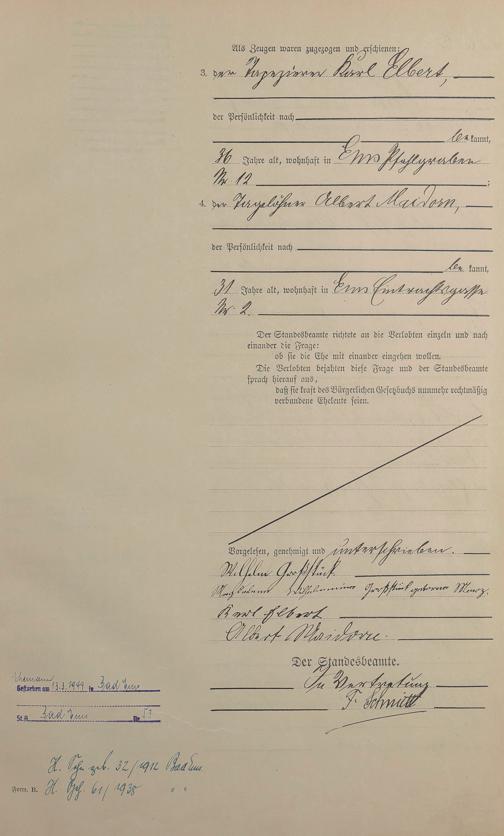 Als Zeugen waren zugezogen und erschienen:
3. der Tapezierer Karl Elbert,
der Persönlichkeit nach
bekannt,
36 Jahre alt, wohnhaft in Ems Pfahlgraben
Nr 12;
4. der Tagelöhner Albert Maidorn,
der Persönlichkeit nach
bekannt,
31 Jahre alt, wohnhaft in Ems Eintrachtsgasse
Nr 2.
Der Standesbeamte richtete an die Verlobten einzeln und nach
einander die Frage:
ob sie die Ehe mit einander eingehen wollen.
Die Verlobten bejahten diese Frage und der Standesbeamte
sprach hierauf aus,
daß sie kraft des Bürgerlichen Gesetzbuchs nunmehr rechtmäßig
verbundene Eheleute seien.
Vorgelesen, genehmigt und unterschrieben.
Wilhelm Großstück
Wilhelmine Großstück geborene
Karl Elbert
Albert Maidorn.
Der Standesbeamte.
In Vertretung
F. Schmitt
Ehemann
Gestorben am 13.3.1944 in Bad Ems
St.A. Bad Ems Nr.
H. Sohn geb. 32/1912 Bad Ems
H. 61/1938 " "
Form. B.